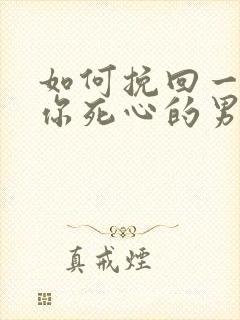 如何挽回一
你死心的男
真戒煙